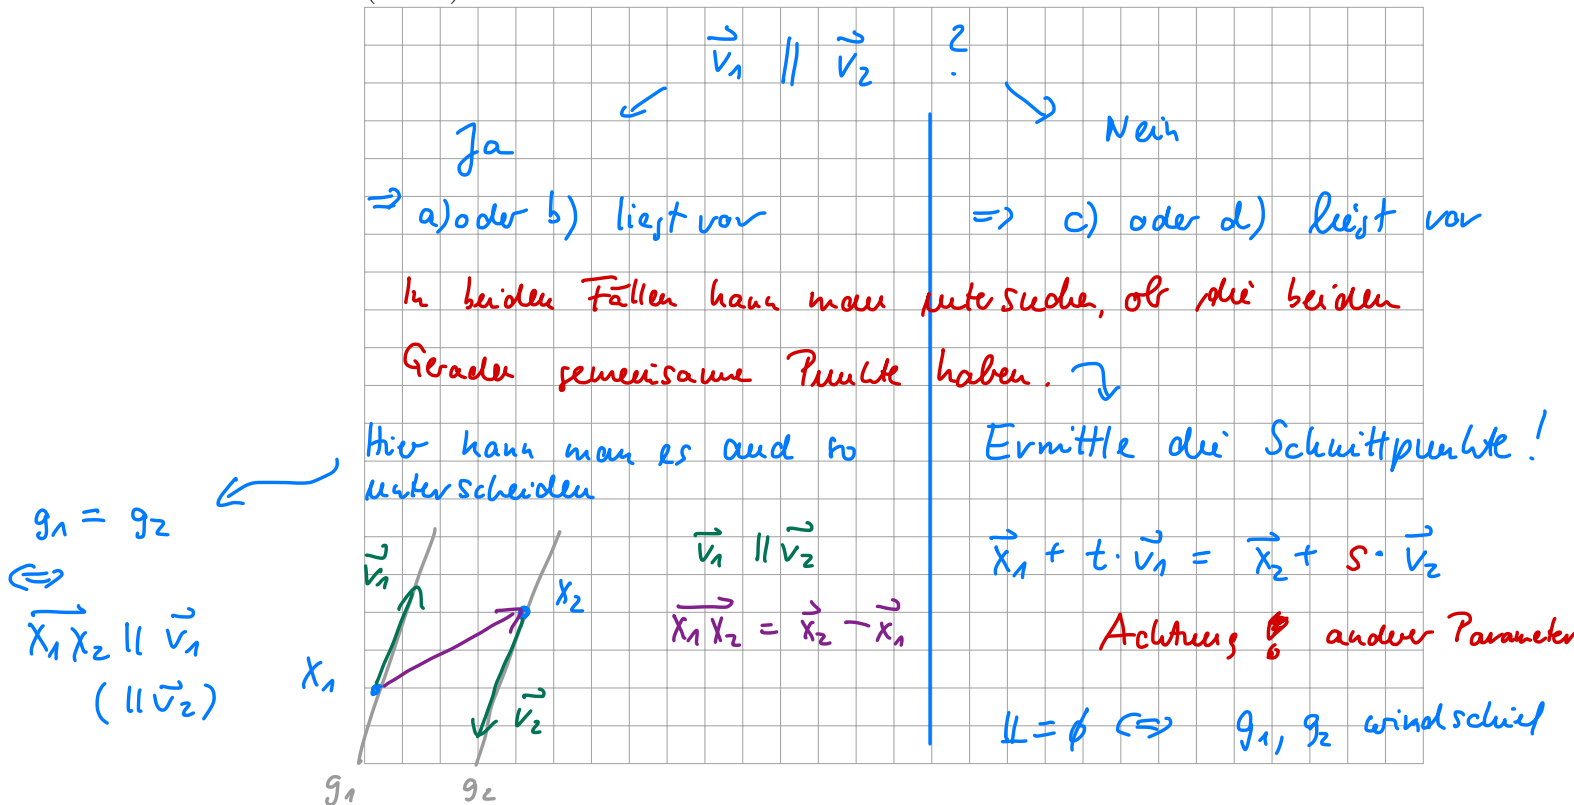 v⃗₁ ∥ v⃗₂ ?
Ja
Nein
⇒ a) oder b) liegt vor
⇒ c) oder d) liegt vor
In beiden Fällen kann man untersuchen, ob die beiden
Geraden gemeinsame Punkte haben.
Hier kann man es auch so
unterscheiden
g₁ = g₂
⇔
X₁X₂⃗ ∥ v⃗₁
(∥ v⃗₂)
v⃗₁
X₂
X₁
v⃗₂
g₁
g₂
v⃗₁ ∥ v⃗₂
X₁X₂⃗ = x⃗₂ − x⃗₁
Ermittle die Schnittpunkte!
x⃗₁ + t · v⃗₁ = x⃗₂ + s · v⃗₂
Achtung ! anderer Parameter
𝕃 = ∅ ⇔ g₁, g₂ windschief